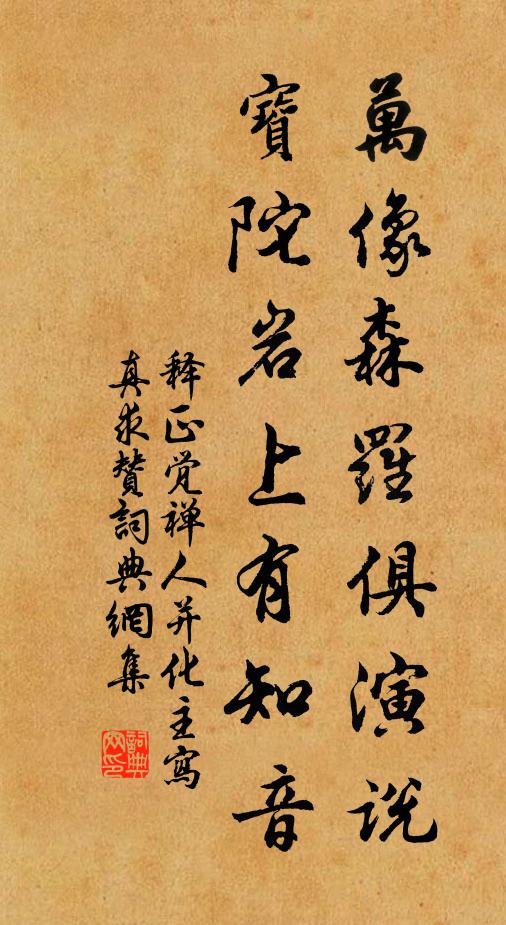 萬像森羅俱演説
寶陀岩上有知音
释正觉禅人并化主寫
真求赞詞典網集
詞典
网印